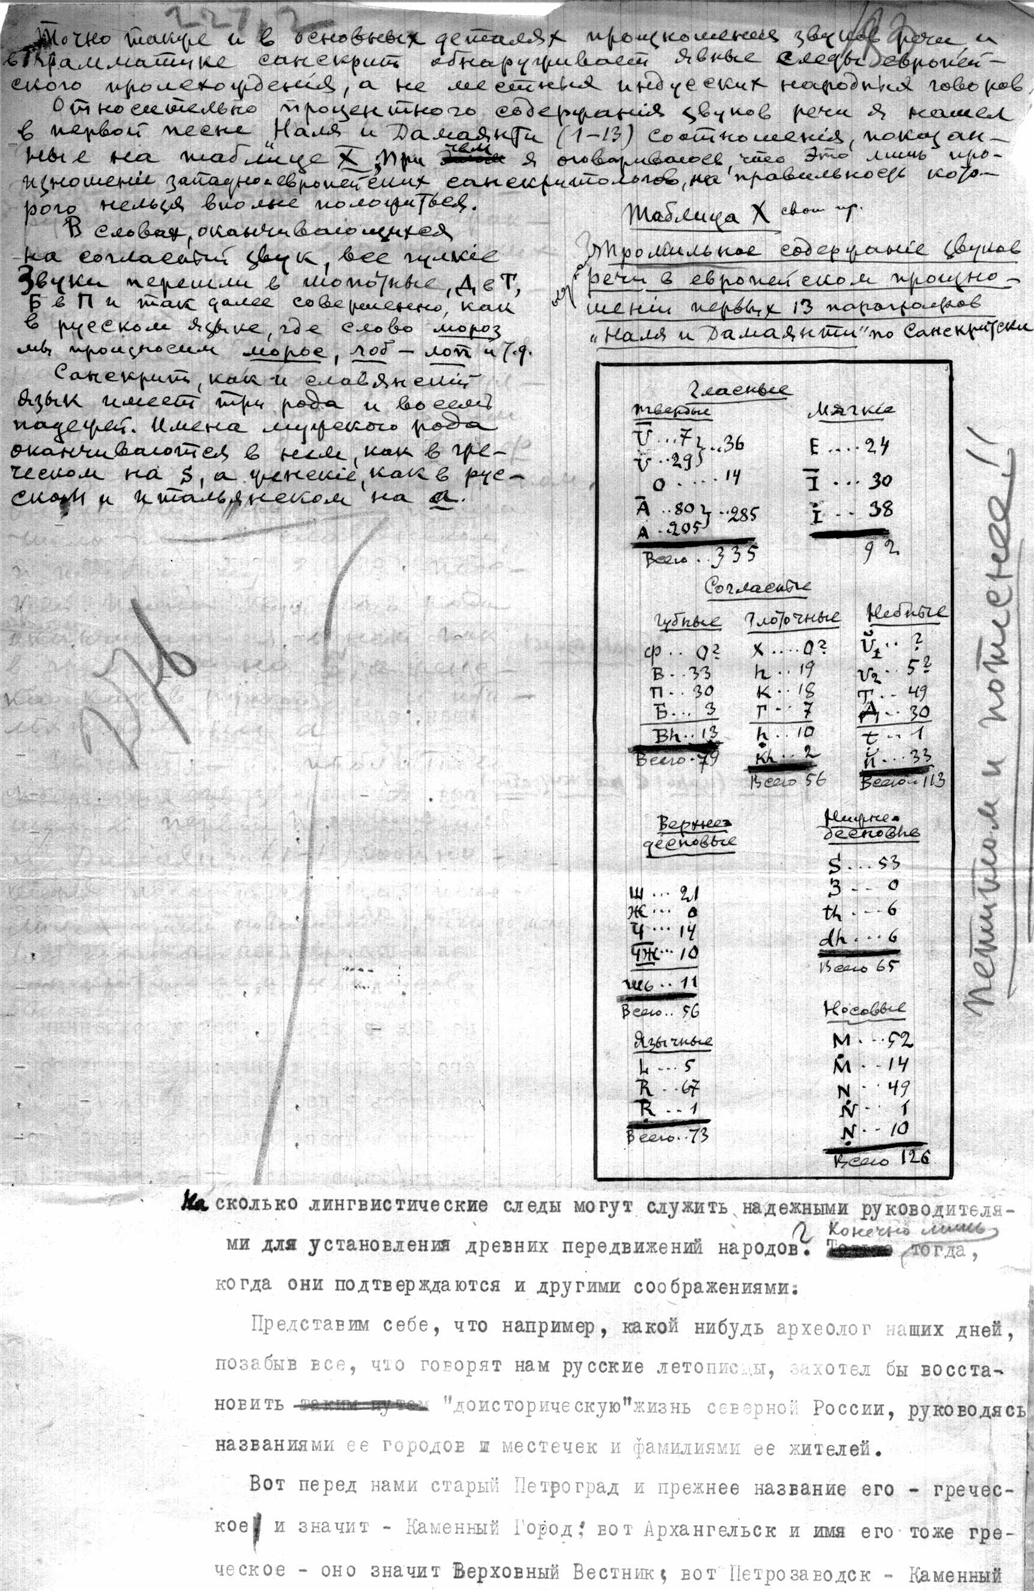 227, 2
Точно также и в основных деталях произношения звуков речи и
в грамматике санскрит обнаруживает явные следы европей-
ского происхождения, а не местныя индусских народныя говоров.
Относительно процентного содержания звуков речи я нашел
в первой песне Наля и Дамаянти (1-13) соотношения, показан-
ные на таблице X, при чем я оговариваюсь что это лишь про-
изношеніе западно-европейских санскритологов, на правильность кото-
рого нельзя вполне положиться.
В словах, оканчивающихся
на согласный звук, все гулкіе
Звуки перешли в шопотные, Д в Т,
Б в П и так далее совершенно, как
в русском языке, где слово мороз
мы произносим морос, лоб – лоп и т.д.
Санскрит, как и славянскій
язык имеет три рода и восемь
падежей. Имена мужского рода
оканчиваются в нем, как в гре-
ческом на S, а женскіе, как в рус-
ском и итальянском на а.
Таблица X
Промильное содержаніе звуков
речи в европейском произно-
шеніи первых 13 параграфов
„Наля и Дамаянти" по Санскритски
Гласные
Твердые
Ū ... 7 } .. 36
Ŭ .. 29
O ..... 14
Ā .. 80 } .. 285
A .. 205
Всего .. 335
Мягкіе
E .... 24
Ī ... 30
I ... 38
92
Согласные
Губные
Ф .. 0?
В .. 33
П .. 30
Б ... 3
Bh .. 13
Всего . 79
Глоточные
X .... 0?
h .. 19
К .. 18
Г .. 7
ḥ .. 10
Kh .. 2
Всего 56
Небные
Ŭ1 .. ?
U2 .. 5?
Т .. 49
Д .. 30
t .. 1
Й ... 33
Всего .. 113
Верхне-
десновые
Ш ... 21
Ж ... 0
Ч ... 14
ЧЖ ... 10
шь .. 11
Всего .. 56
Нижне-
десновые
S ... 53
З ... 0
th ... 6
dh ... 6
Всего 65
Язычные
L ... 5
R .. 67
Ṛ ... 1
Всего .. 73
Носовые
М ... 52
Ṁ .. 14
N .. 49
Ṅ .. 1
Ṇ .. 10
Всего 126
петитом и потеснее!!
На сколько лингвистические следы могут служить надежными руководителя-
ми для установления древних передвижений народов? Конечно лишь тогда,
когда они подтверждаются и другими соображениями:
Представим себе, что например, какой нибудь археолог наших дней,
позабыв все, что говорят нам русские летописцы, захотел бы восста-
новить таким путем "доисторическую" жизнь северной России, руководясь
названиями ее городов и местечек и фамилиями ее жителей.
Вот перед нами старый Петроград и прежнее название его - гречес-
кое и значит - Каменный Город: вот Архангельск и имя его тоже гре-
ческое - оно значит Верховный Вестник; вот Петрозаводск - Каменный